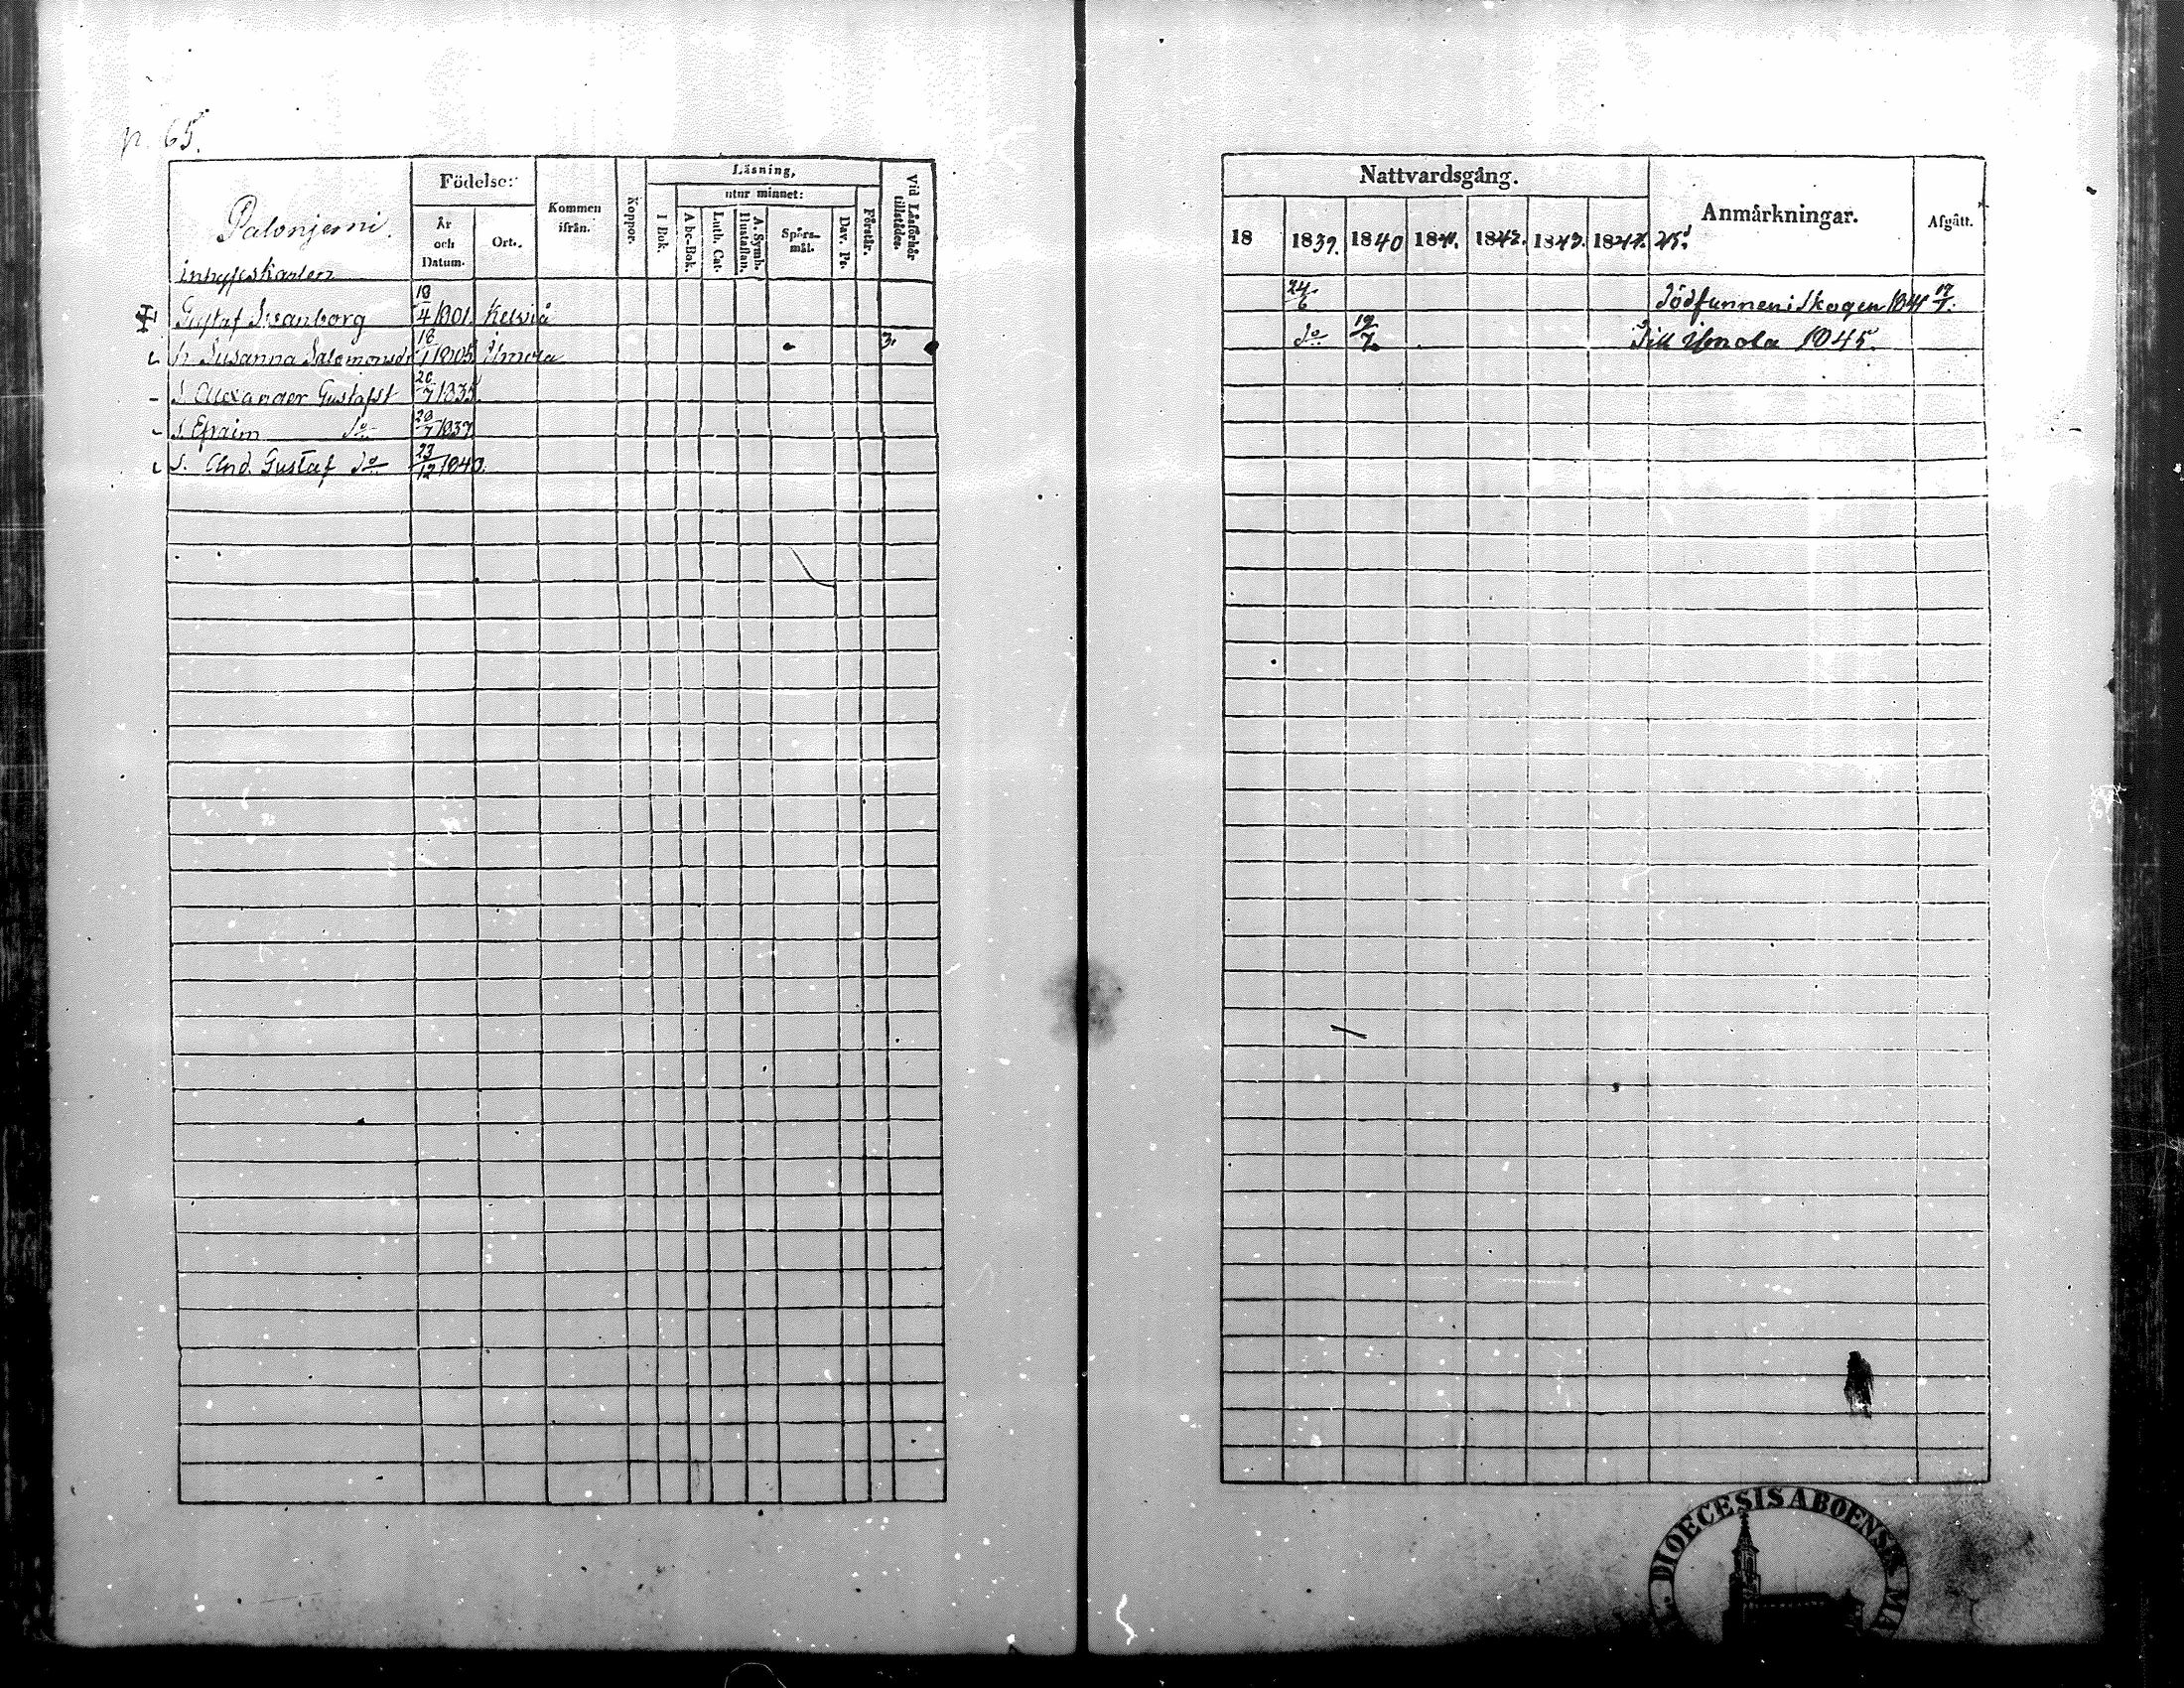 p. 65.
Palonjemi.
Födelse:
År och Datum.
Ort.
Kommen ifrån.
Koppor.
Läsning,
utur minnet:
I Bok.
Abc-Bok.
Luth. Cat.
A. Symb. Hustaflan.
Spörs-mål.
Dav. Ps.
Förstår.
Vid Läsförhör tillstädes.
Inhysskarlen
Gustaf Svanborg 18/4 1801. Kelviå
h. Susanna Salomonsdr 16/1 1805 Ilmola 3.
S. Alexander Gustafss 20/7 1835.
S. Efraim Do 29/7 1837
S. And. Gustaf Do 23/12 1840.
Nattvardsgång.
Anmärkningar.
Afgått.
18 1839. 1840 1841. 1842. 1843. 1844. 45.
24/6 Dödfunnen i Skogen 1841 17/7.
Do 19/7 Till Ilmola 1845.
DIOECESIS ABOENSIS